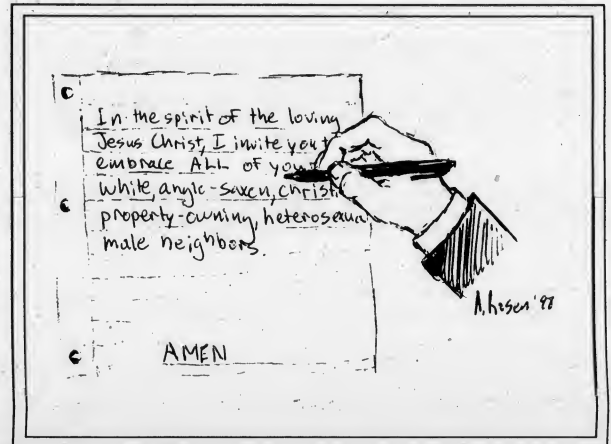 In the spirit of the loving
Jesus Christ, I invite you t
embrace ALL of you
white, anglo-saxon, christi
property-owning, heterosexua
male neighbors.
AMEN
'98